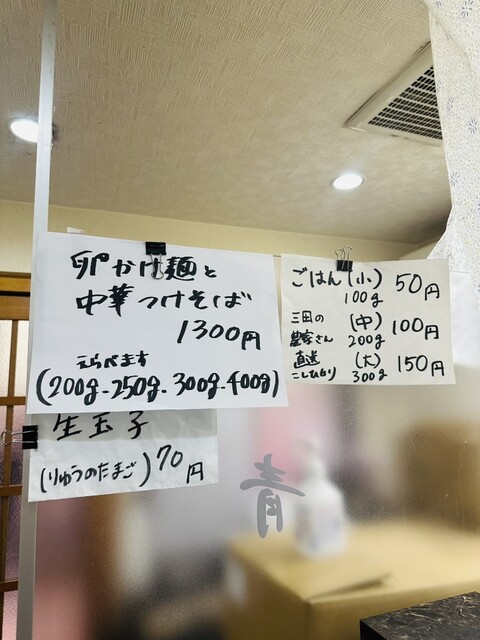 卵かけ麺と
中華つけそば
1300円
えらべます
(200g-250g-300g-400g)
生玉子
(りゅうのたまご) 70円
ごはん (小) 50円
100g
三田の (中) 100円
農家さん 200g
直送 (大) 150円
こしひかり 300g
青